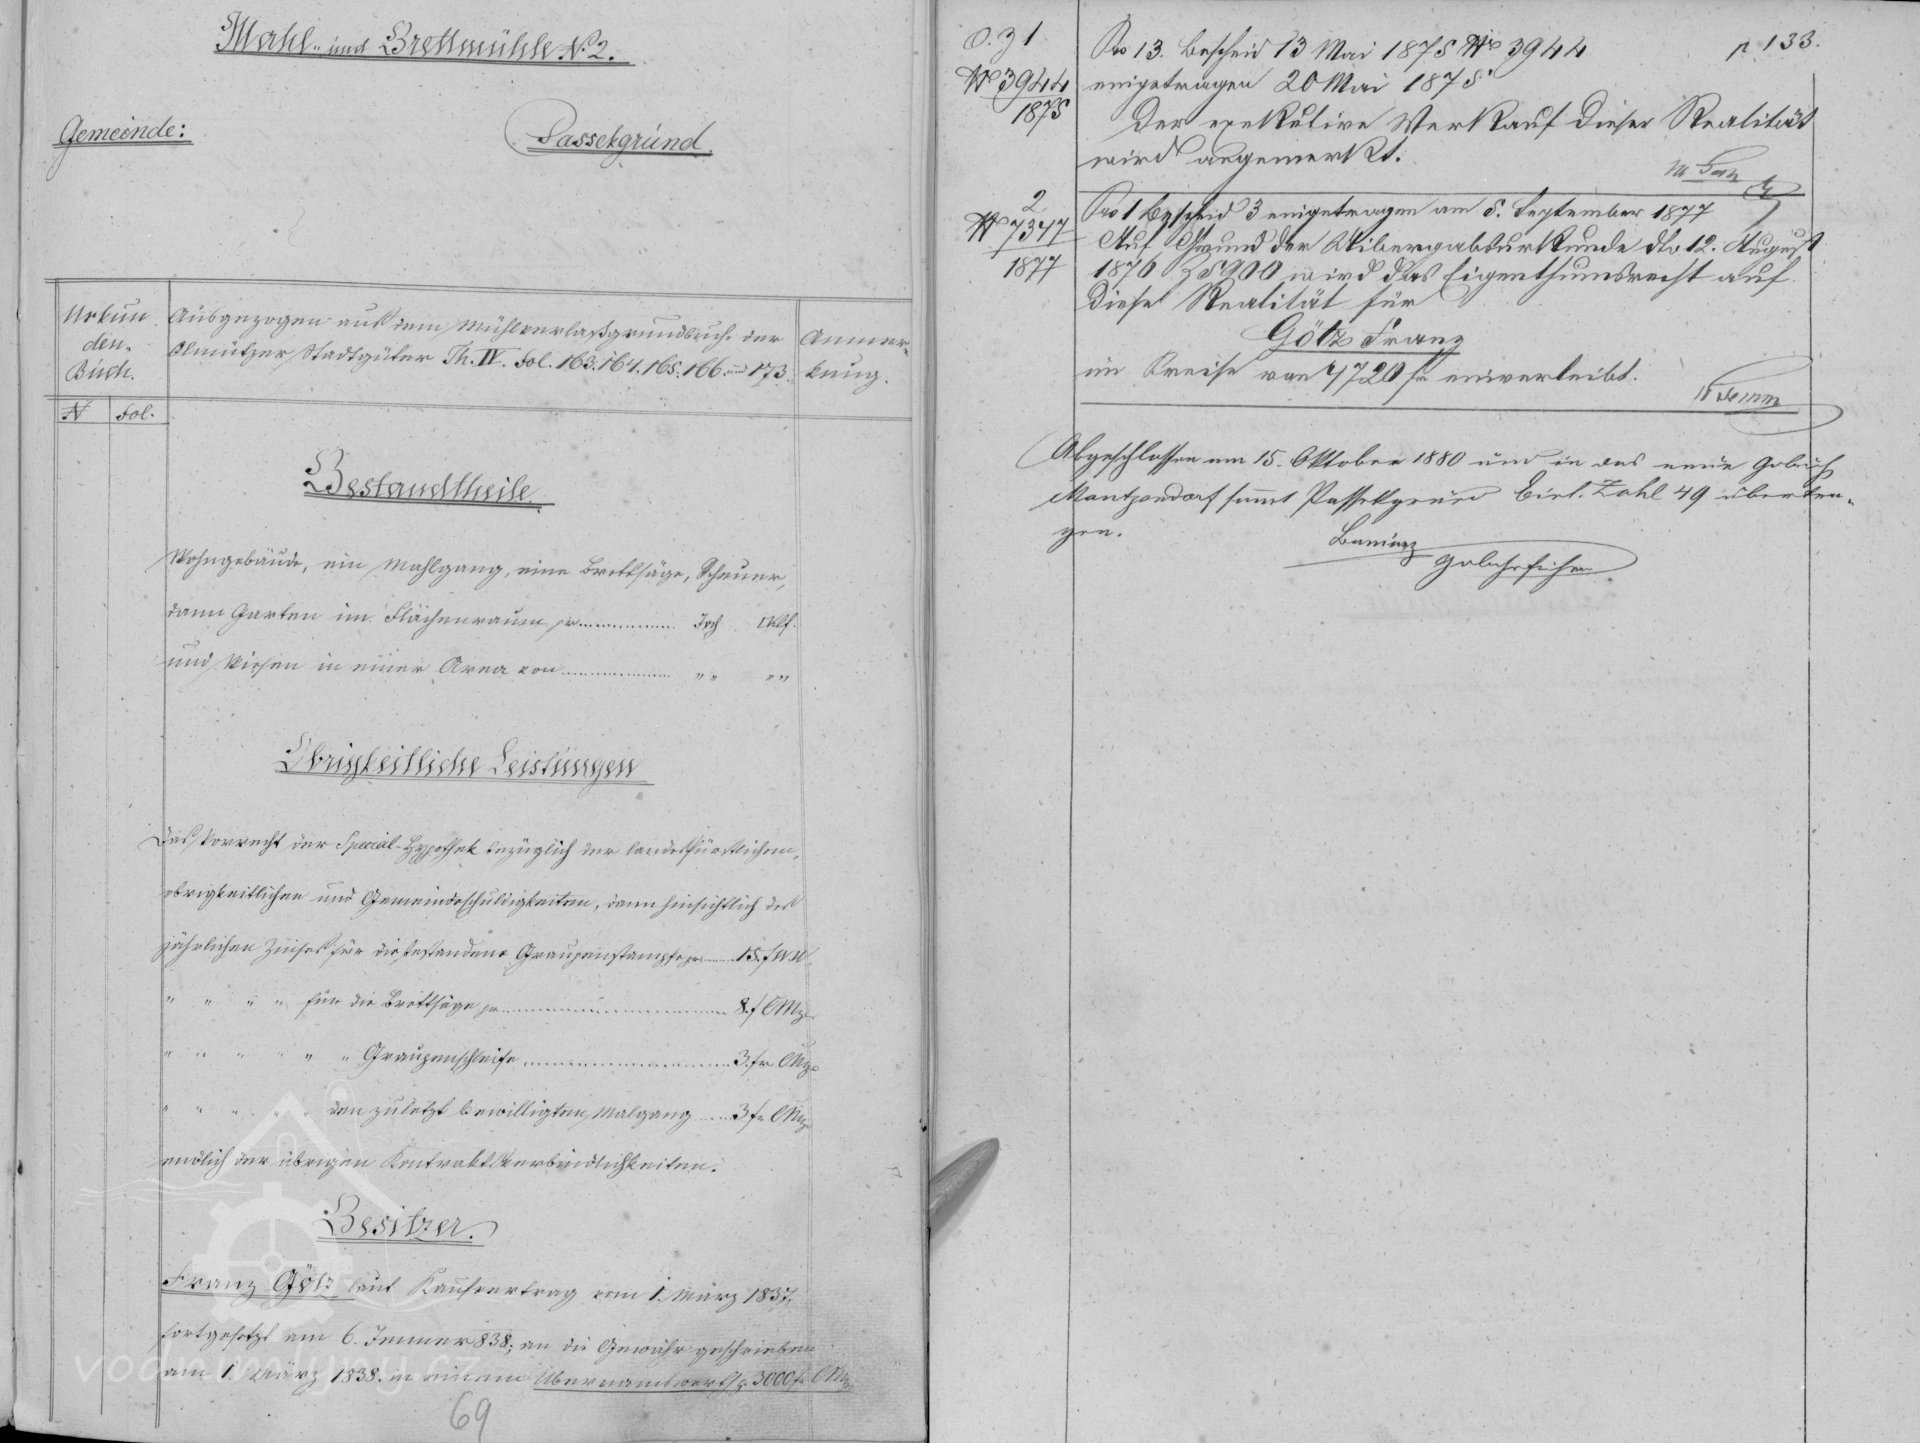 Mahl- und Brettmühle N. 2.
Gemeinde:
Passekgrund.
Urkunden-Buch.
Ausgezogen aus dem Mühlverlaßgrundbuche der
Olmützer Stadtgüter Th. IV. Fol. 163. 164. 165. 166. und 173.
Anmerkung.
N Fol.
Bestandtheile
Wohngebäude, ein Mahlgang, eine Brettsäge, Scheuer,
dann Garten im Flächenraum pr Joch Klf.
und Wiesen in einer Area von " " " "
Obrigkeitliche Leistungen
Das Vorrecht der Special-Hypothek bezüglich der landesfürstlichen,
obrigkeitlichen und Gemeindeschuldigkeiten, dann hinsichtlich des
jährlichen Zinses für die bestandene Graupenstampfe pr 15. f W.W.
" " " " für die Brettsäge pr 8. f CMz
" " " " " " Graupenschleife 3. fr CMz
" " " " " den zuletzt bewilligten Malgang 3 fr CMz
endlich der übrigen Kontraktsverbindlichkeiten.
Besitzer.
Franz Götz laut Kaufvertrag vom 1. März 1837,
fortgesetzt am 6. Jenner 838, an die Gewähr geschrieben
am 1. März 1838. in einem Übernamswerth p. 3000 f CMz
69
vodnimlyny.cz
O. Z 1
N 3944
1875
p. 133.
Pro 13. Bescheid 13 Mai 1875 N 3944
eingetragen 20 Mai 1875
Der exekutive Verkauf dieser Realität
wird angemerkt.
2
N 7347
1877
Pro 1 Bescheid 3 eingetragen am 5. September 1877
Auf Grund der Uibergabsurkunde dto 12. August
1876 Z 5900 wird das Eigenthumsrecht auf
diese Realität für
Götz Franz
im Preise von 4720 fr einverleibt.
Abgeschlossen am 15. Oktober 1880 und in das neue Gbuch
Nantzendorf sammt Passekgrund Einl. Zahl 49 übertragen.
Gbuchsführer